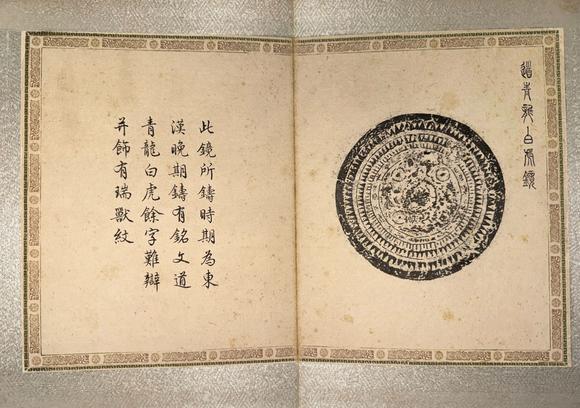 道青龍白虎鏡
此鏡所鑄時期為東
漢晚期鑄有銘文道
青龍白虎餘字難辯
并飾有瑞獸紋